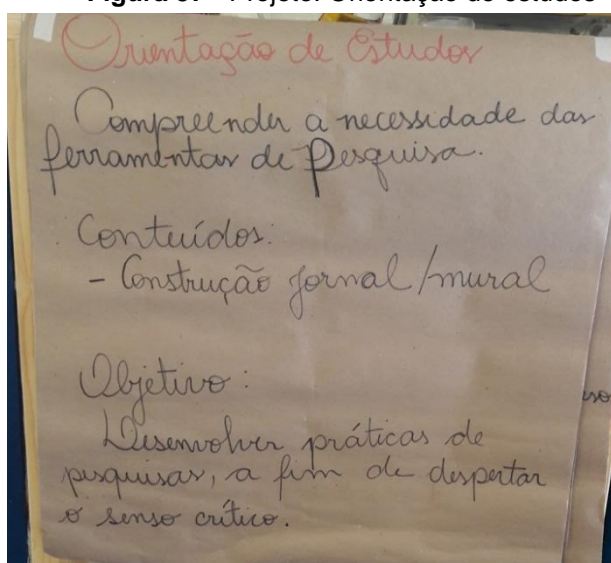 Orientação de Estudos
Compreender a necessidade das
ferramentas de Pesquisa.
Conteúdos:
- Construção jornal/mural
Objetivo:
Desenvolver práticas de
pesquisas, a fim de despertar
o senso crítico.